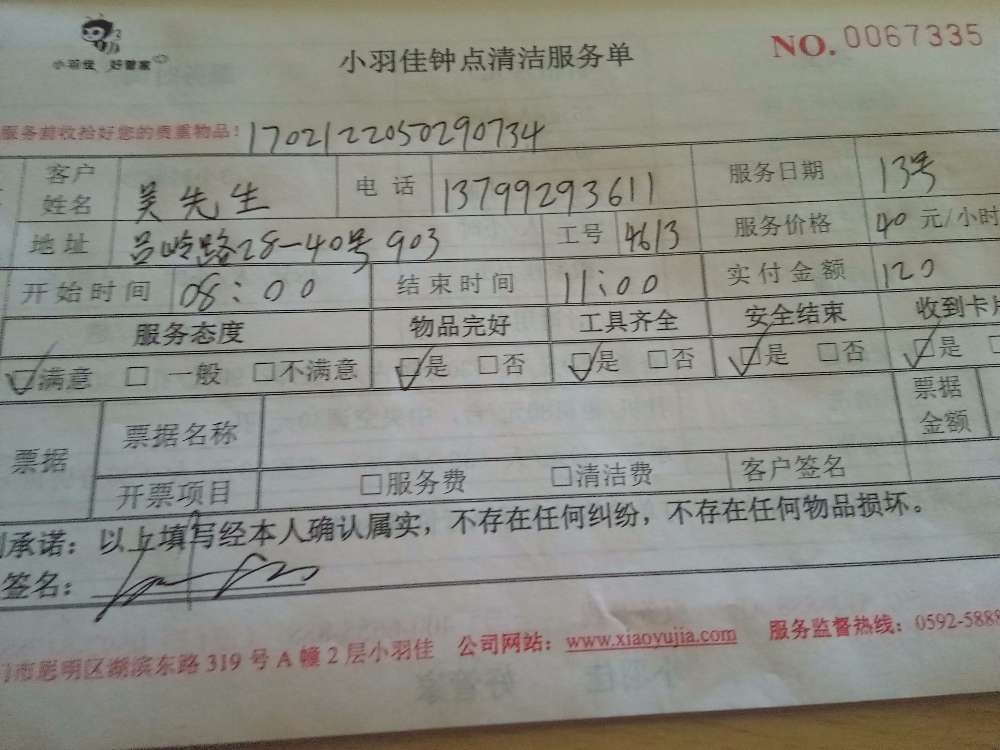 小羽佳 好管家
小羽佳钟点清洁服务单
NO. 0067335
服务前收拾好您的贵重物品! 1702122050290734
客户姓名 吴先生 电话 13799293611 服务日期 13号
地址 吕岭路28-40号903 工号 4613 服务价格 40 元/小时
开始时间 08:00 结束时间 11:00 实付金额 120
服务态度 物品完好 工具齐全 安全结束 收到卡片
☑满意 □ 一般 □不满意 ☑是 □否 ☑是 □否 ☑是 □否 ☑是 □
票据 票据名称 票据金额
开票项目 □服务费 □清洁费 客户签名
承诺：以上填写经本人确认属实，不存在任何纠纷，不存在任何物品损坏。
签名：
门市思明区湖滨东路 319 号 A 幢 2 层小羽佳 公司网站：www.xiaoyujia.com 服务监督热线：0592-5888